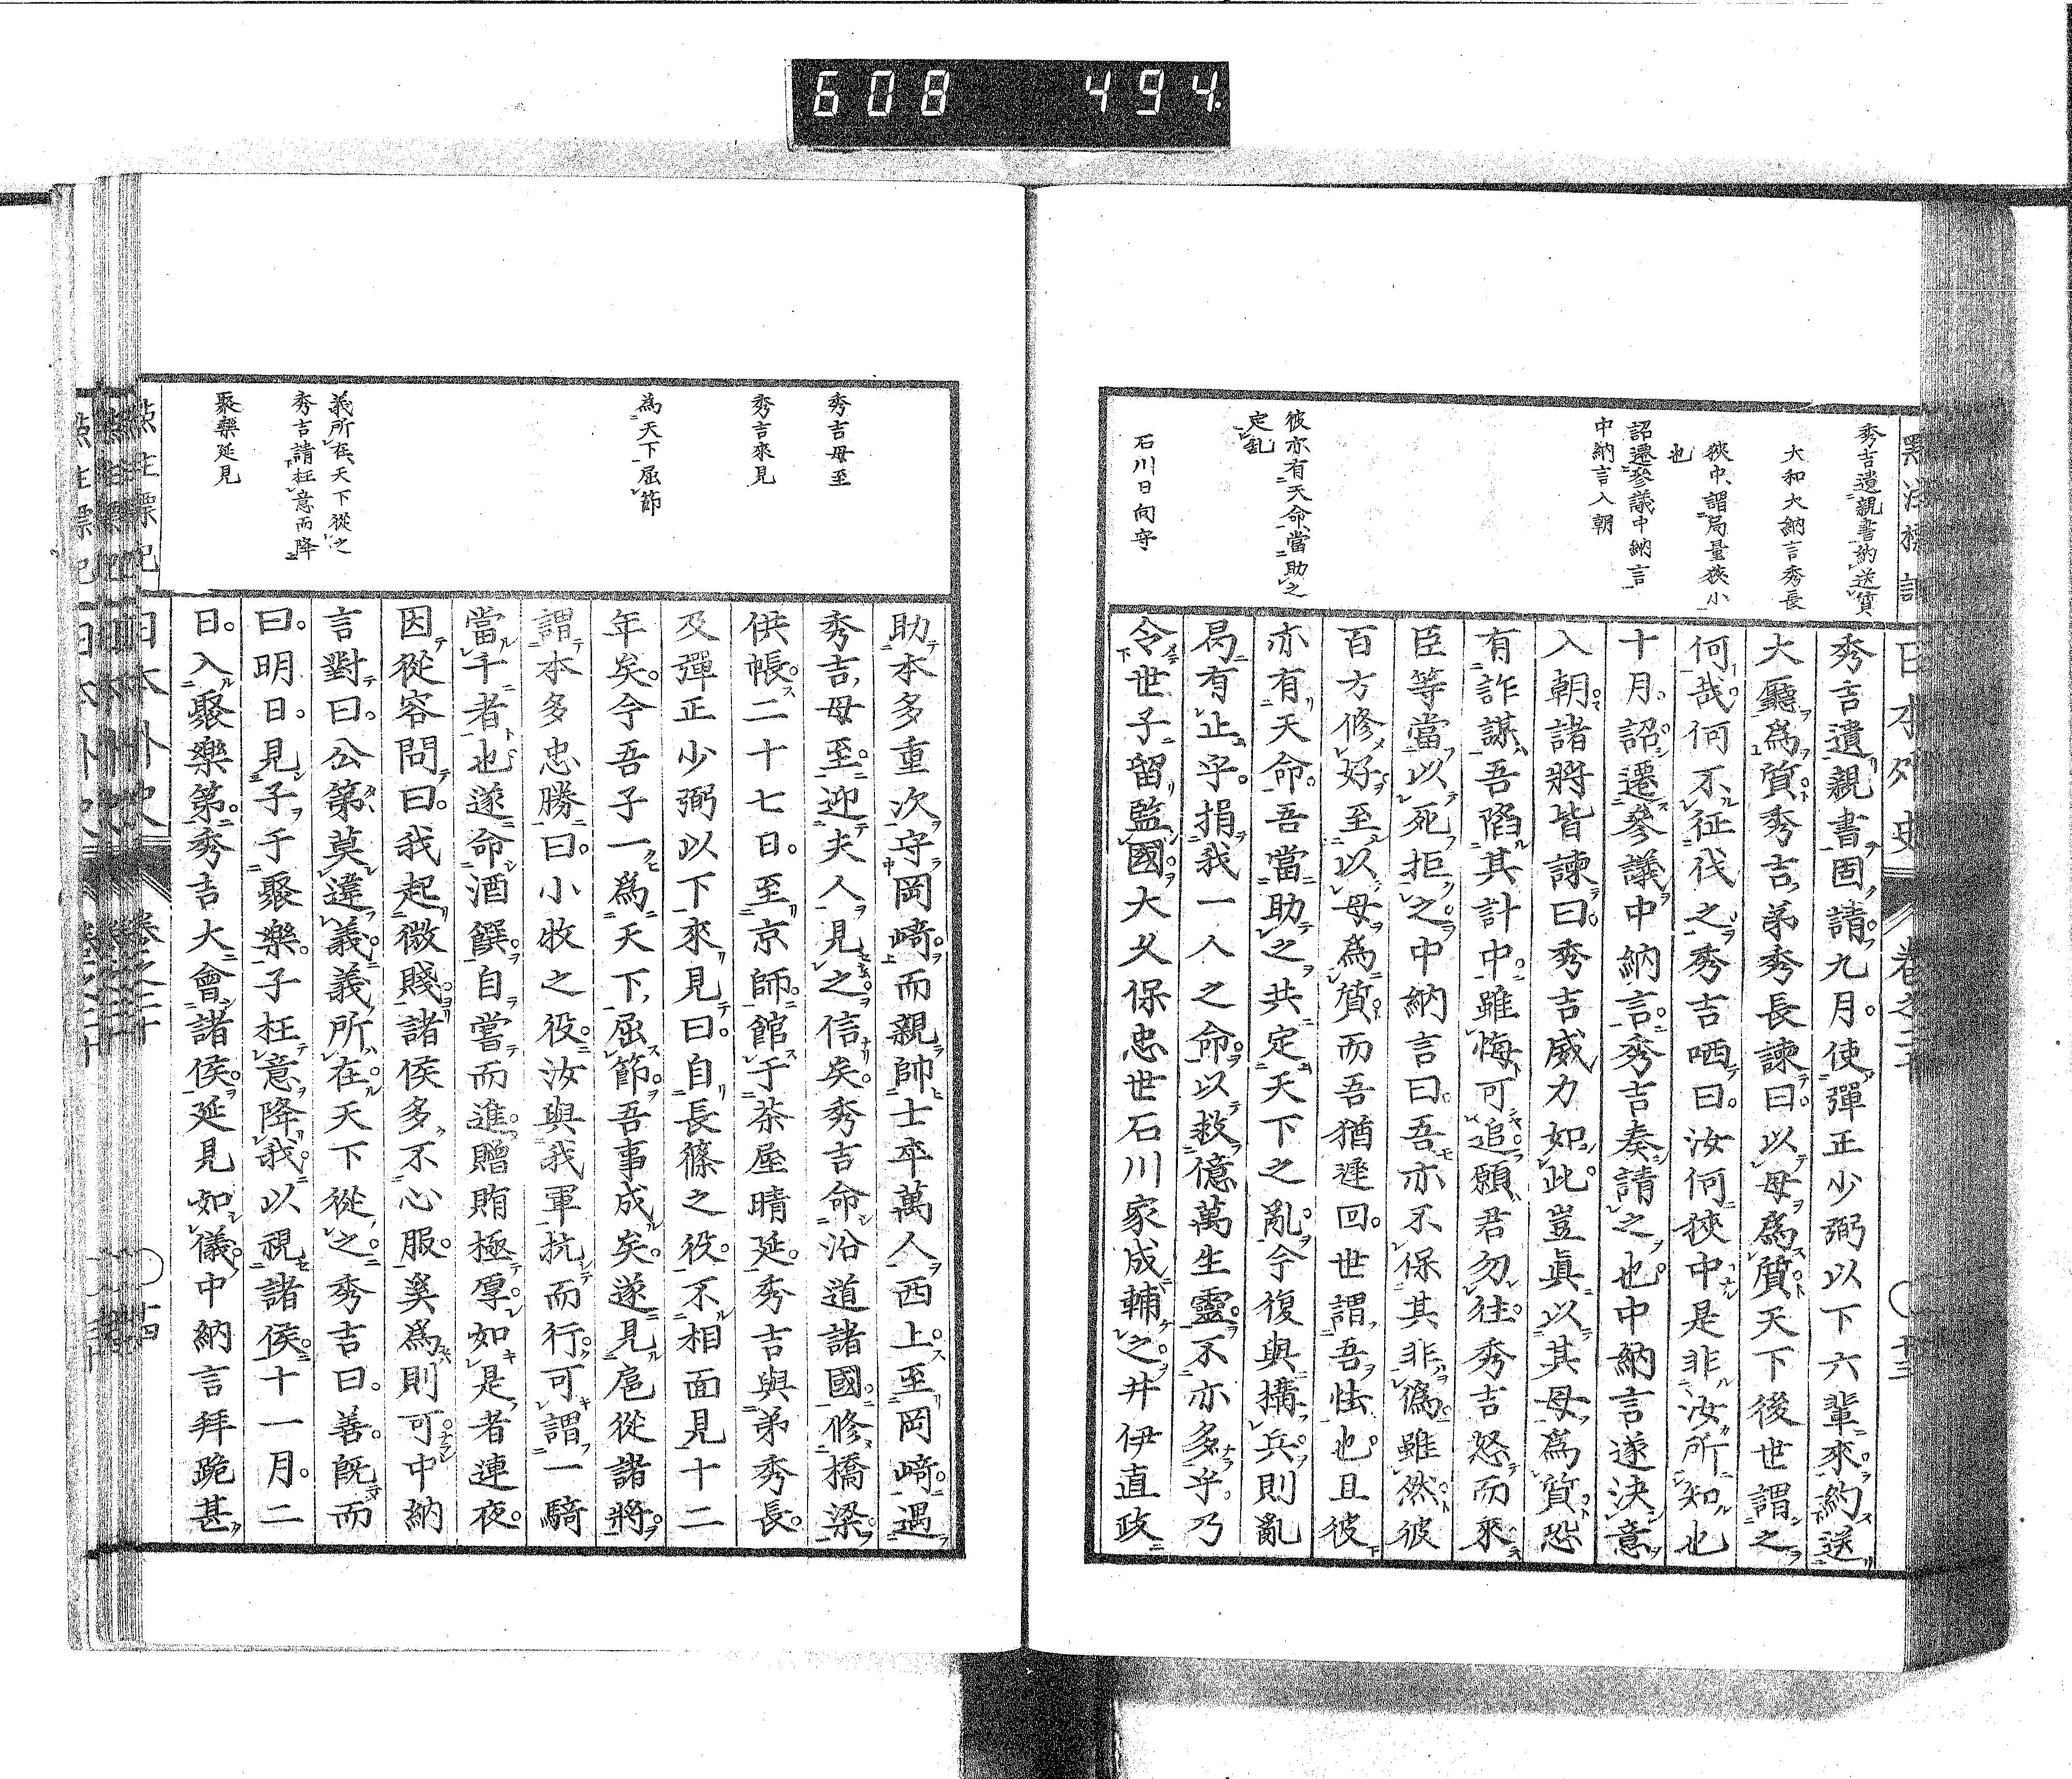 608 494.
秀吉遺親書納送質
大和大納言秀長
狹中、謂局量狹小
也
詔遷參議中納言
中納言入朝
彼亦有天命、當助之
定亂
石川日向守
日本外史
秀吉遺親書固請。九月。使彈正少弼以下六輩來約送
大廳爲質。秀吉弟秀長諫曰。以母爲質。天下後世謂之
何哉。何不征伐之。秀吉哂曰。汝何狹中。是非汝所知也
十月。詔遷參議中納言。秀吉奏請之也。中納言遂決意
入朝。諸將皆諫曰。秀吉威力如此。豈眞以其母爲質。恐
有詐謀。吾陷其計中。雖悔可追。願君勿往。秀吉怒而來
臣等當以死拒之。中納言曰。吾亦不保其非僞。雖然彼
百方修好。至以母爲質。而吾猶遲回。世謂吾怯也。且彼
亦有天命。吾當助之共定天下之亂。今復與搆兵。則亂
曷有止乎。捐我一人之命。以救億萬生靈。不亦多乎。乃
令世子留監國。大久保忠世石川家成輔之。井伊直政
秀吉母至
秀吉來見
爲天下屈節
義所在、天下從之
秀吉請枉意而降
聚樂延見
助本多重次守岡崎。而親帥士卒萬人西上。至岡崎。遇
秀吉母至。迎夫人見之。信矣。秀吉命沿道諸國。修橋梁。
供帳。二十七日。至京師。館于茶屋晴延。秀吉與弟秀長。
及彈正少弼以下來見曰。自長篠之役。不相面見十二
年矣。今吾子一爲天下屈節。吾事成矣。遂見扈從諸將。
謂本多忠勝曰。小牧之役。汝與我軍抗而行。可謂一騎
當千者也。遂命酒饌。自嘗而進。贈賄極厚。如是者連夜。
因從容問曰。我起微賤。諸侯多不心服。奚爲則可。中納
言對曰。公第莫違義。義所在。天下從之。秀吉曰。善。旣而
曰。明日。見子于聚樂。子枉意降我。以視諸侯。十一月。二
日。入聚樂第。秀吉大會諸侯。延見如儀。中納言拜跪甚